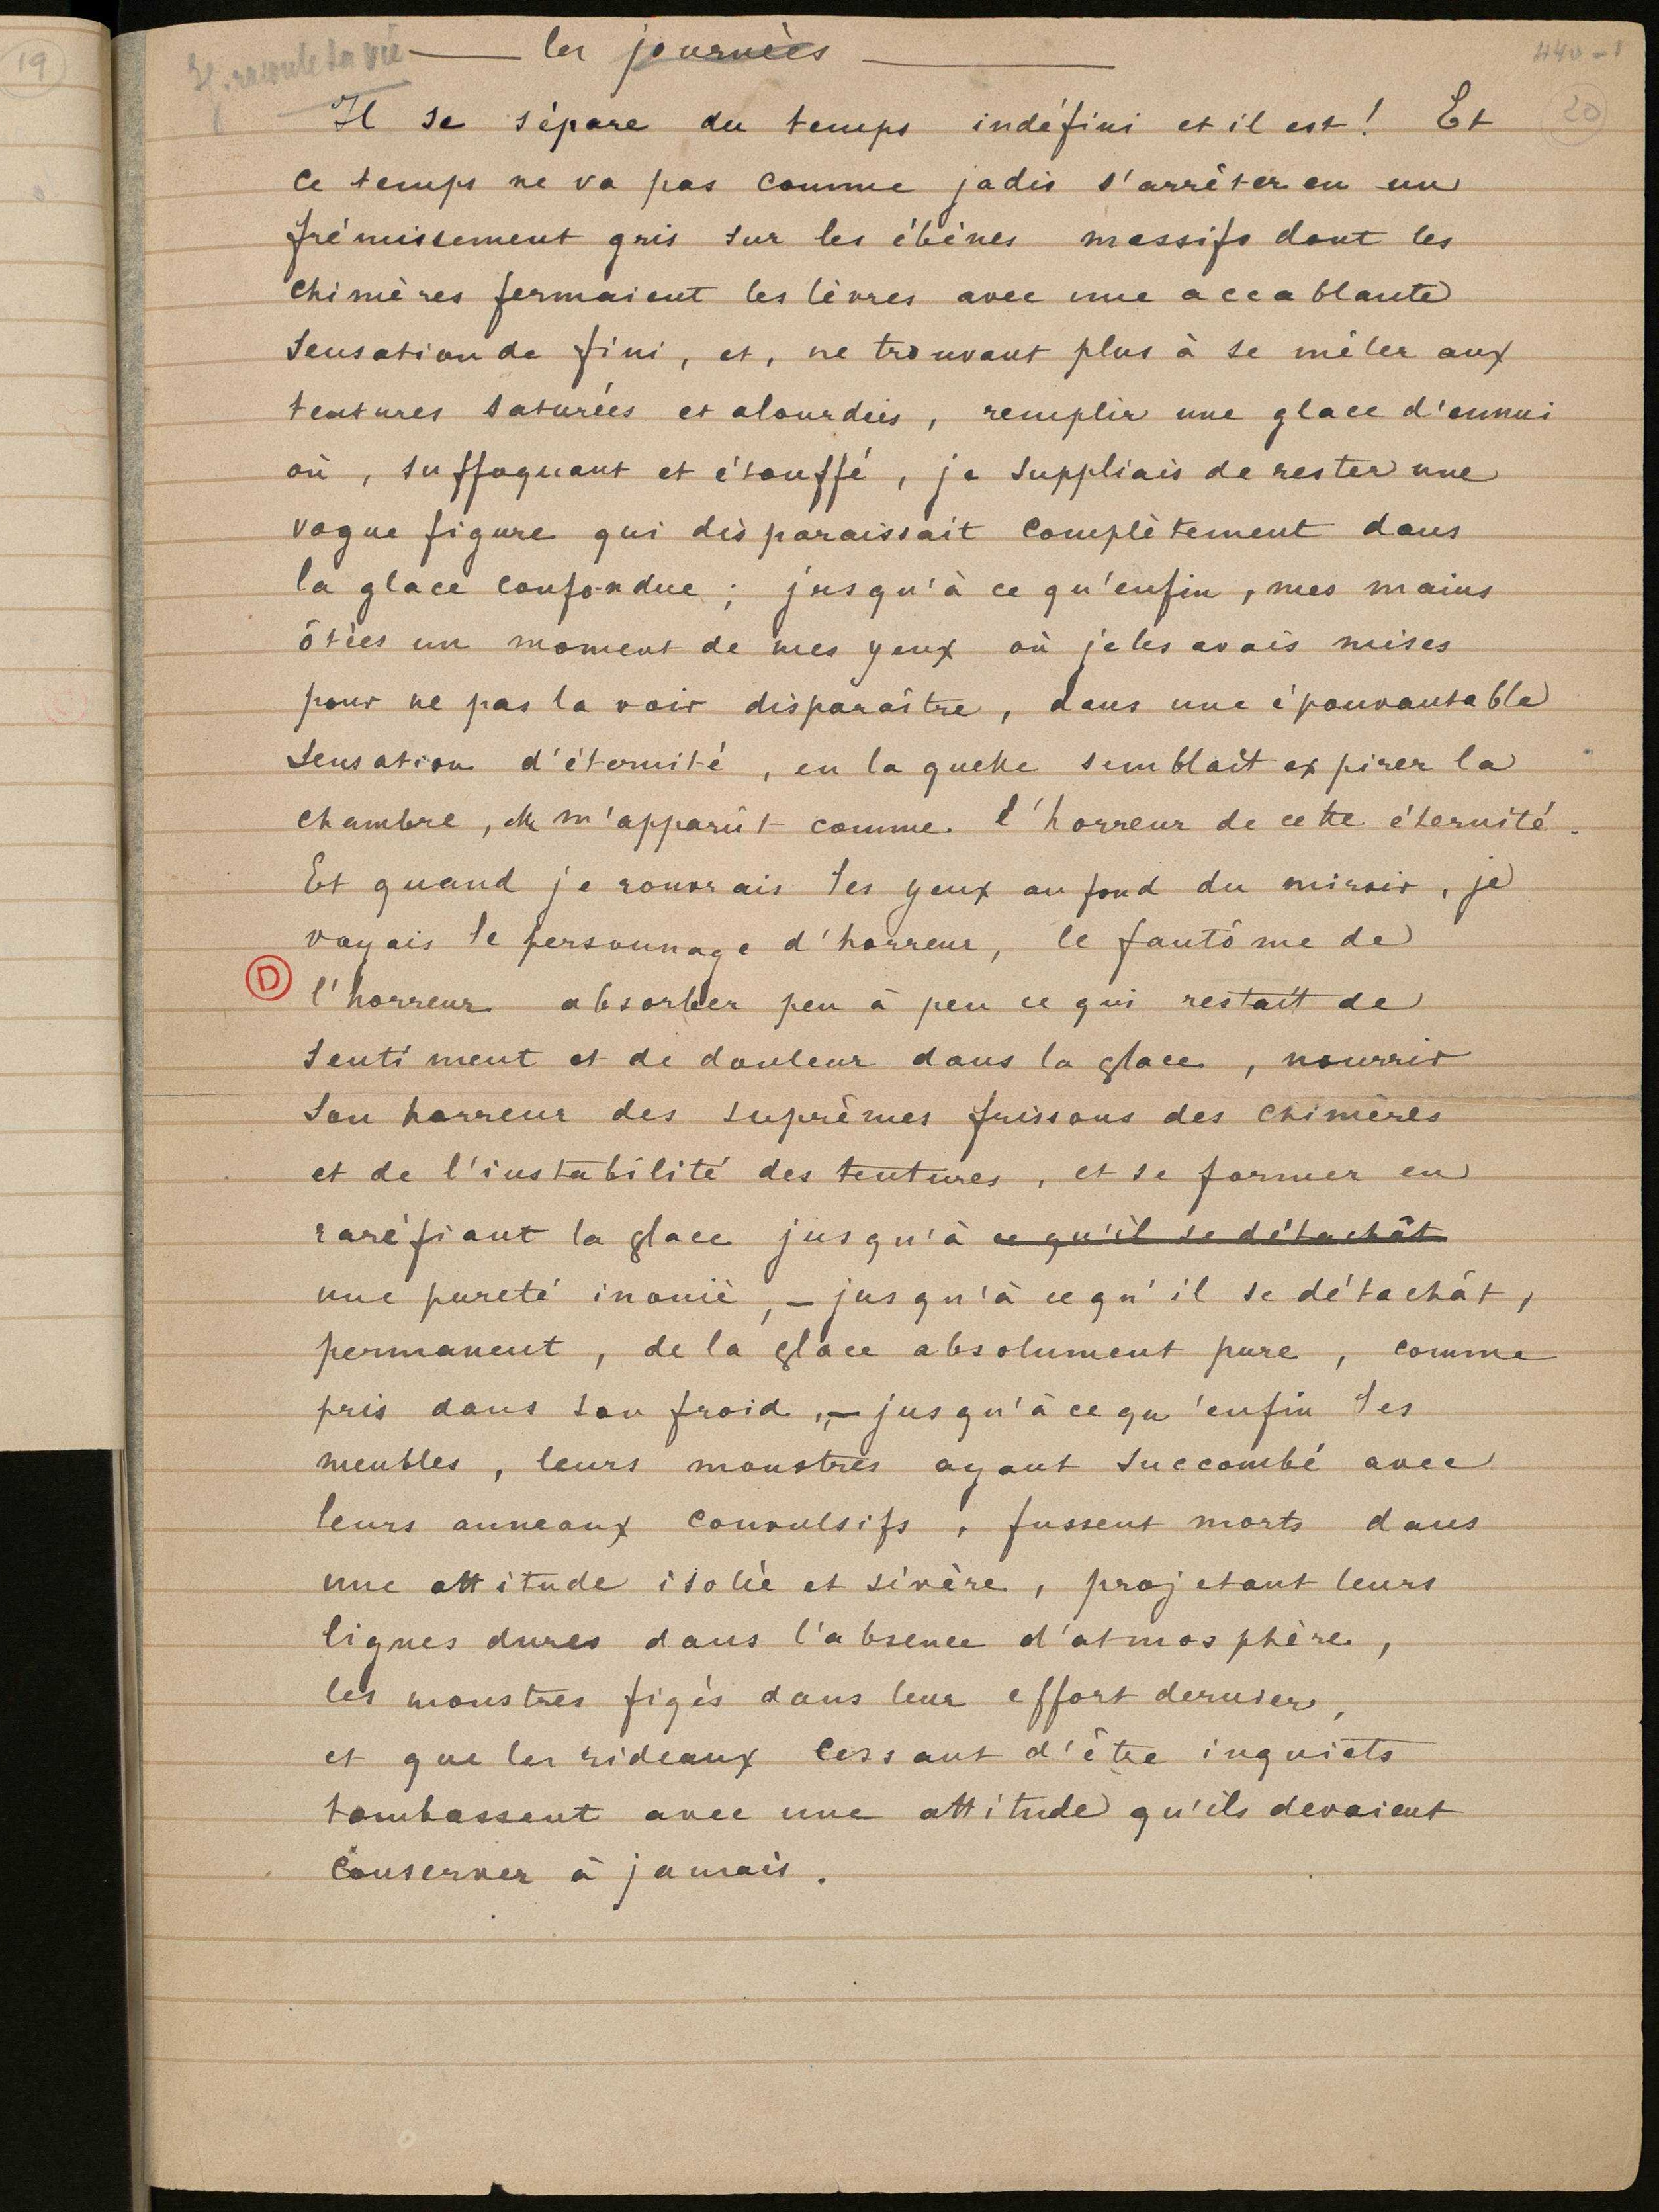 19
Il raconte la vie
— les journées —
440 - 1
20
Il se sépare du temps indéfini et il est ! Et
ce temps ne va pas comme jadis s'arrêter en un
frémissement gris sur les ébènes massifs dont les
chimères fermaient les lèvres avec une accablante
sensation de fini, et, ne trouvant plus à se mêler aux
tentures saturées et alourdies, remplir une glace d'ennui
où, suffoquant et étouffé, je suppliais de rester une
vague figure qui disparaissait complètement dans
la glace confondue ; jusqu'à ce qu'enfin, mes mains
ôtées un moment de mes yeux où je les avais mises
pour ne pas la voir disparaître, dans une épouvantable
sensation d'éternité, en laquelle semblait expirer la
chambre, elle m'apparût comme l'horreur de cette éternité.
Et quand je rouvrais les yeux au fond du miroir, je
voyais le personnage d'horreur, le fantôme de
D
l'horreur absorber peu à peu ce qui restait de
sentiment et de douleur dans la glace, nourrir
son horreur des suprêmes frissons des chimères
et de l'instabilité des tentures, et se former en
raréfiant la glace jusqu'à ce qu'il se détachât
une pureté inouïe, – jusqu'à ce qu'il se détachât,
permanent, de la glace absolument pure, comme
pris dans son froid, – jusqu'à ce qu'enfin les
meubles, leurs monstres ayant succombé avec
leurs anneaux convulsifs, fussent morts dans
une attitude isolée et sévère, projetant leurs
lignes dures dans l'absence d'atmosphère,
les monstres figés dans leur effort dernier,
et que les rideaux cessant d'être inquiets
tombassent avec une attitude qu'ils devaient
conserver à jamais.